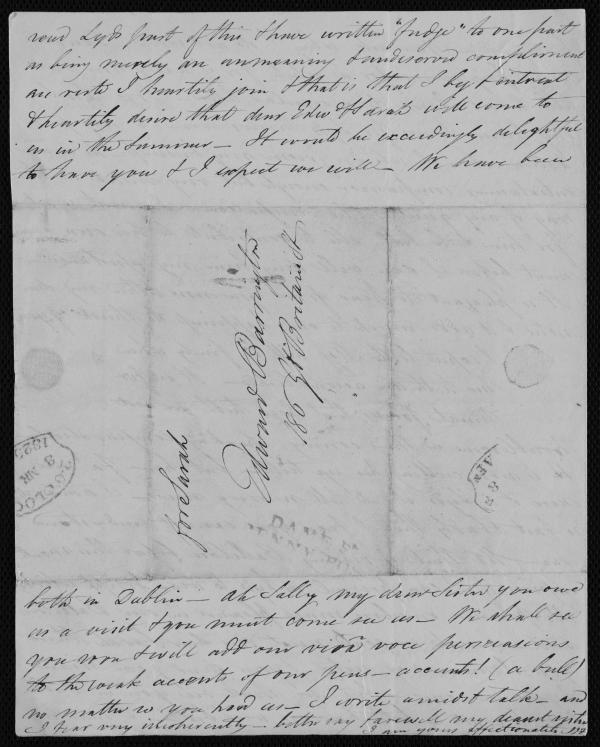 read Lyds part of this I have written "fudge" to one part
as being merely an unmeaning & undeserved compliment
the rest I heartily join & that is that I beg & entreat
& heartily desire that dear Edwd & Sarah will come to
us in the Summer – It would be exceedingly delightful
to have you & I expect we will – We have been
for Sarah
Edward Barrington
186 Gt Britain St
2 O'CLOCK
8 MR
PENNY PO
both in Dublin – Ah Sally my dear Sister you owe
us a visit & you must come see us – We shall see
you soon & will add our viva voce persuasions
to the weak accent of our pens – accents! (a bull)
no matter so you heed us – I write amidst talk – and
I fear very incoherently – both say farewell my dearest sister
I am yours affectionately